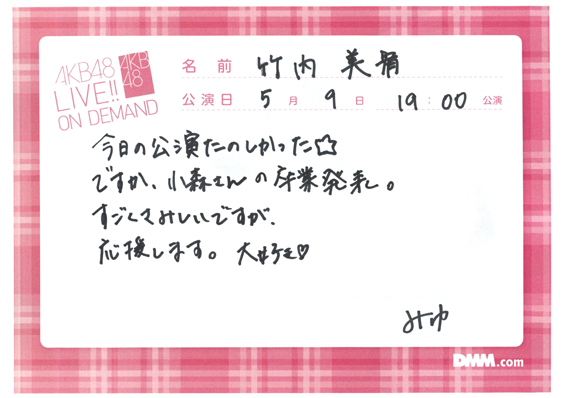 AKB48
LIVE!!
ON DEMAND
AKB
48
名前 竹内 美宥
公演日 5月 9日 19:00 公演
今日の公演たのしかった☆
ですが、小森さんの卒業発表。
すごくさみしいですが、
応援します。大好き♡
みゆ
DMM.com